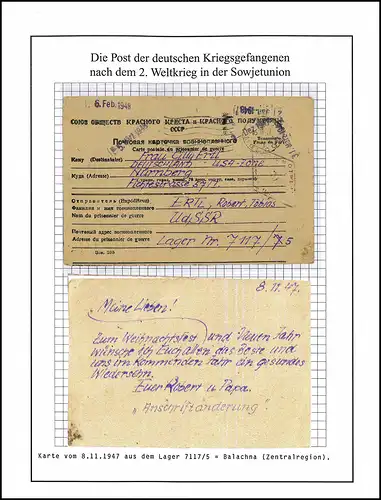 Die Post der deutschen Kriegsgefangenen
nach dem 2. Weltkrieg in der Sowjetunion
6. Feb. 1948
СОЮЗ ОБЩЕСТВ КРАСНОГО КРЕСТА и КРАСНОГО ПОЛУМ
СССР
Почтовая карточка военнопленного
Carte postale du prisonnier de guerre
Кому (Destinataire) Frau Cilly Ertl
USA-Zone
Куда (Adresse) Nürnberg
Отправитель (Expéditeur) ERTL, Robert, Tobias
Фамилия и имя военнопленного
Nom du prisonnier de guerre UdSSR
Почтовый адрес военнопленного
Adresse du prisonnier de guerre Lager Nr. 7117/5
8.11.47.
Meine Lieben!
Zum Weihnachtsfest und Neuen Jahr
wünsche ich Euch allen das Beste und
uns im Kommenden Jahr ein gesundes
Wiedersehn.
Euer Robert u. Papa.
"Anschriftänderung"
Karte vom 8.11.1947 aus dem Lager 7117/5 = Balachna (Zentralregion).